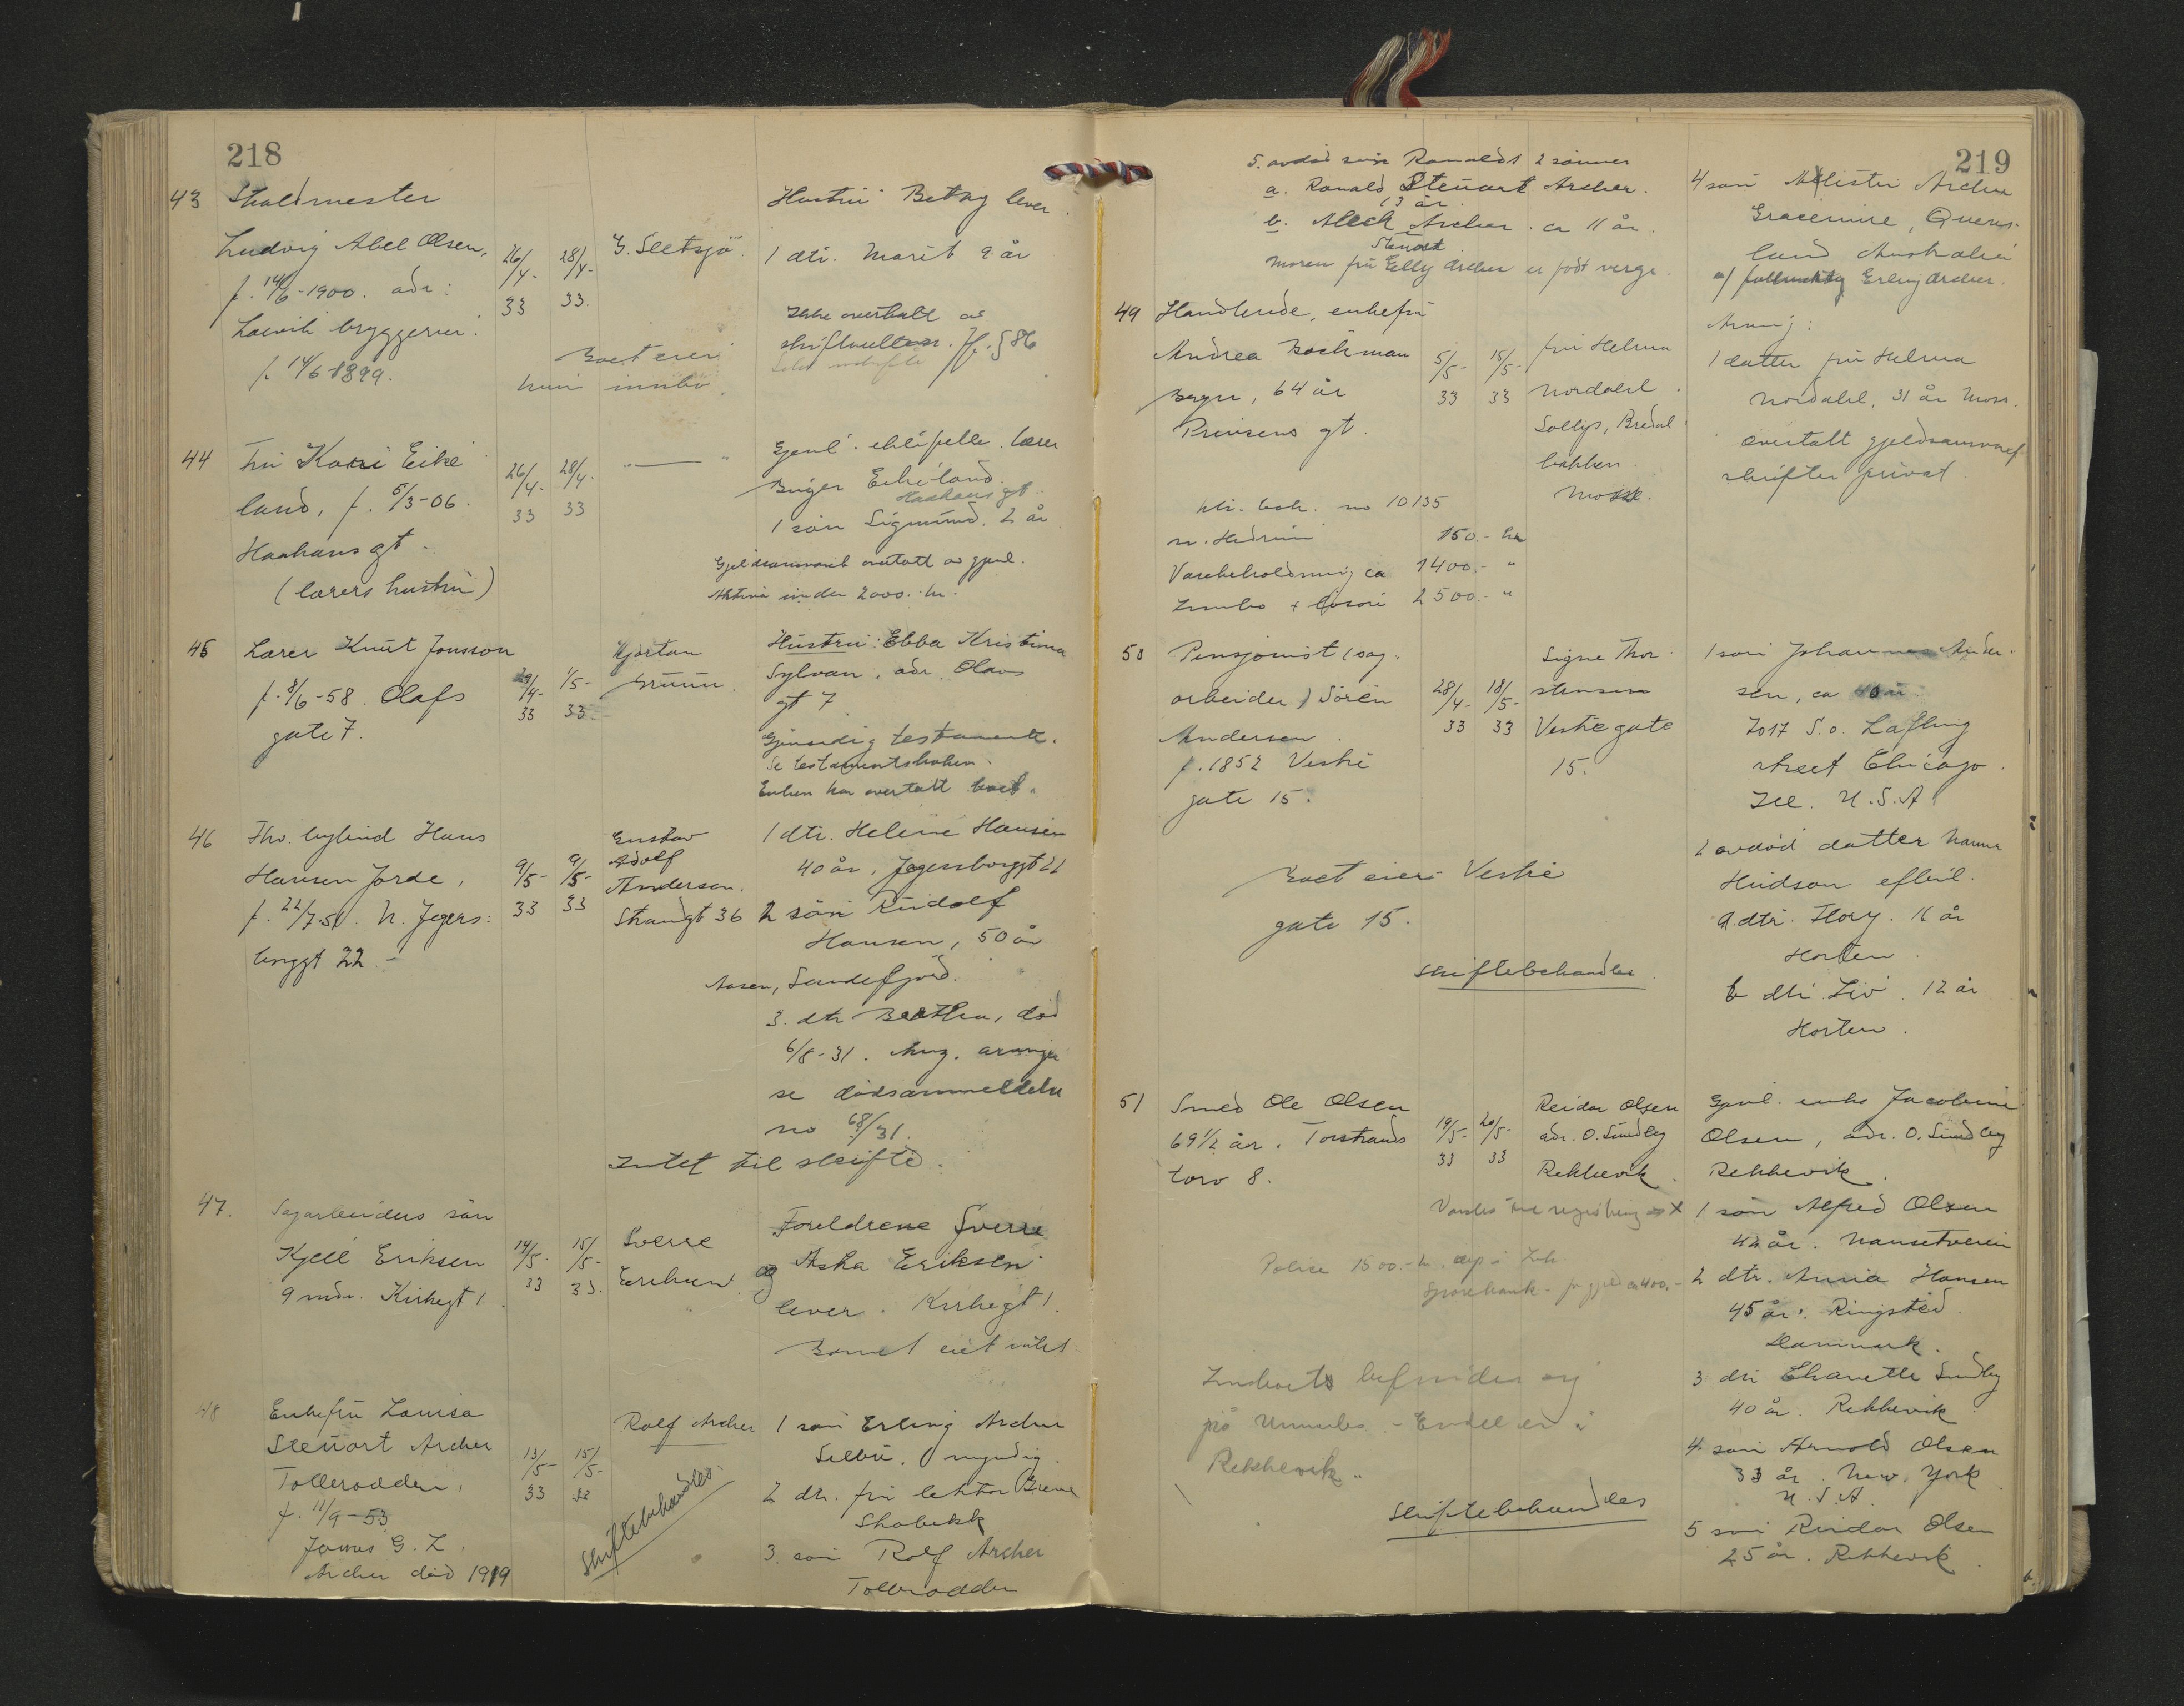 218
43 Staldmester
Ludvig Abel Olsen,
f. 14/6-1900. adr:
Larvik bryggerier.
f. 14/6-1899.
26/4-33
28/4-33.
Boet eier
kun innbo.
Hustru Betzy lever.
1 dtr. Marit 9 år
skifteretten. Jf. § 86
44 Fru Kari Eike
land, f. 5/3-06.
Haakons gt.
(lærers hustru)
26/4-33
28/4-33
" — "
Gjenl. ektefelle lærer
Birger Eikeland.
Haakons gt.
1 sön Sigmund. 2 år
Gjeldsansvaret overtatt av gjenl.
Aktiva under 2000.- kr.
45 Lærer Knut Jonsson
f. 8/6-58. Olafs
gate 7.
29/4-33
1/5-33
Kjartan
Grunn.
Hustru: Ebba Kristina
Sylvan, adr. Olavs
gt 7
Gjensidig testamente.
Se testamentsboken.
Enken har overtatt boet.
46 Fhv. bybud Hans
Hansen Jorde,
f. 22/7-51. N. Jegers-
borggt 22.-
9/5-33
9/5-33
Gustav
Adolf
Andersen.
Strandgt 36
1 dtr. Helene Hansen
40 år, Jegersborggt 22
2 sön Rudolf
Hansen, 50 år
Aasen, Sandefjord.
3. dtr Berthea, död
6/8-31. Ang. arvinger
se dödsanmeldelse
no 68/31.
Intet til skifte.
47. Sagarbeiders sön
Kjell Eriksen
9 mdr. Kirkegt 1.
14/5-33
15/5-33.
Sverre
Eriksen.
Foreldrene Sverre
og Aska Eriksen
lever. Kirkegt 1.
Barnet eiet intet
48 Enkefru Louisa
Steuart Archer
Tollerodden,
f. 11/9-53
James G. L.
Archer död 1919
13/5-33
15/5-33
Rolf Archer
Skiftebehandles
1 sön Erling Archer
Selbu. myndig.
2 dtr. fru lektor
3. sön Rolf Archer
Tollerodden
219
5. avdöd sön Ronalds 2 sönner
a. Ronald Steuart Archer.
13 år.
b. Alech Archer. ca 11 år.
Steuart
Moren fru Elly Archer er födt verge.
4 sön Alister Archer
Gracemere, Queens-
land Australia
v/ fullmektig Erling Archer.
49 Handlende, enkefru
Andrea Bockman
Bryn, 64 år
Prinsens gt.
5/5-33
15/5-33
fru Helma
Nordahl.
Solbys, Bredal
bakken.
Moss.
Arving:
1 datter fru Helma
Nordahl, 31 år Moss.
overtatt gjeldsansvaret
skifter privat
ktr. bok. no 10135
n. Hedrum 150.- kr
Varebeholdning ca 1400.- "
Innbo + lösöre 2500.- "
50 Pensjonist (sag-
arbeider) Sören
Andersen
f. 1852 Vestre
gate 15.
28/4-33
18/5-33
Signe Thor-
stensen
Vestre gate
15.
1 sön Johannes Ander-
sen, ca 40 år
7017 S.o. Lafling
street Chicago.
Ill. U.S.A.
2 avdöd datter Hanna
Hudson efterl.
a dtr. Flory. 11 år
Horten.
b dtr. Liv. 12 år
Horten.
Boet eier Vestre
gate 15.
Skiftebehandles.
51 Smed Ole Olsen
69 1/2 år. Torstrands
torv 8.
19/5-33
20/5-33
Reidar Olsen
adr. O. Sundby
Rekkevik.
Gjenl. enke Jacobine
Olsen, adr. O. Sundby
Rekkevik.
1 sön Alfred Olsen
42 år. Nansetveien
2 dtr. Anna Hansen
45 år. Ringsted.
Danmark.
3 dtr Sundby
40 år. Rekkevik.
4. sön Arnold Olsen
33 år. New. York
U.S.A.
5 sön Reidar Olsen
25 år. Rekkevik.
Police 1500.- kr.
Sparebank. for gjeld ca 400.-
Innboets befinder sig
på
Rekkevik.
Skiftebehandles